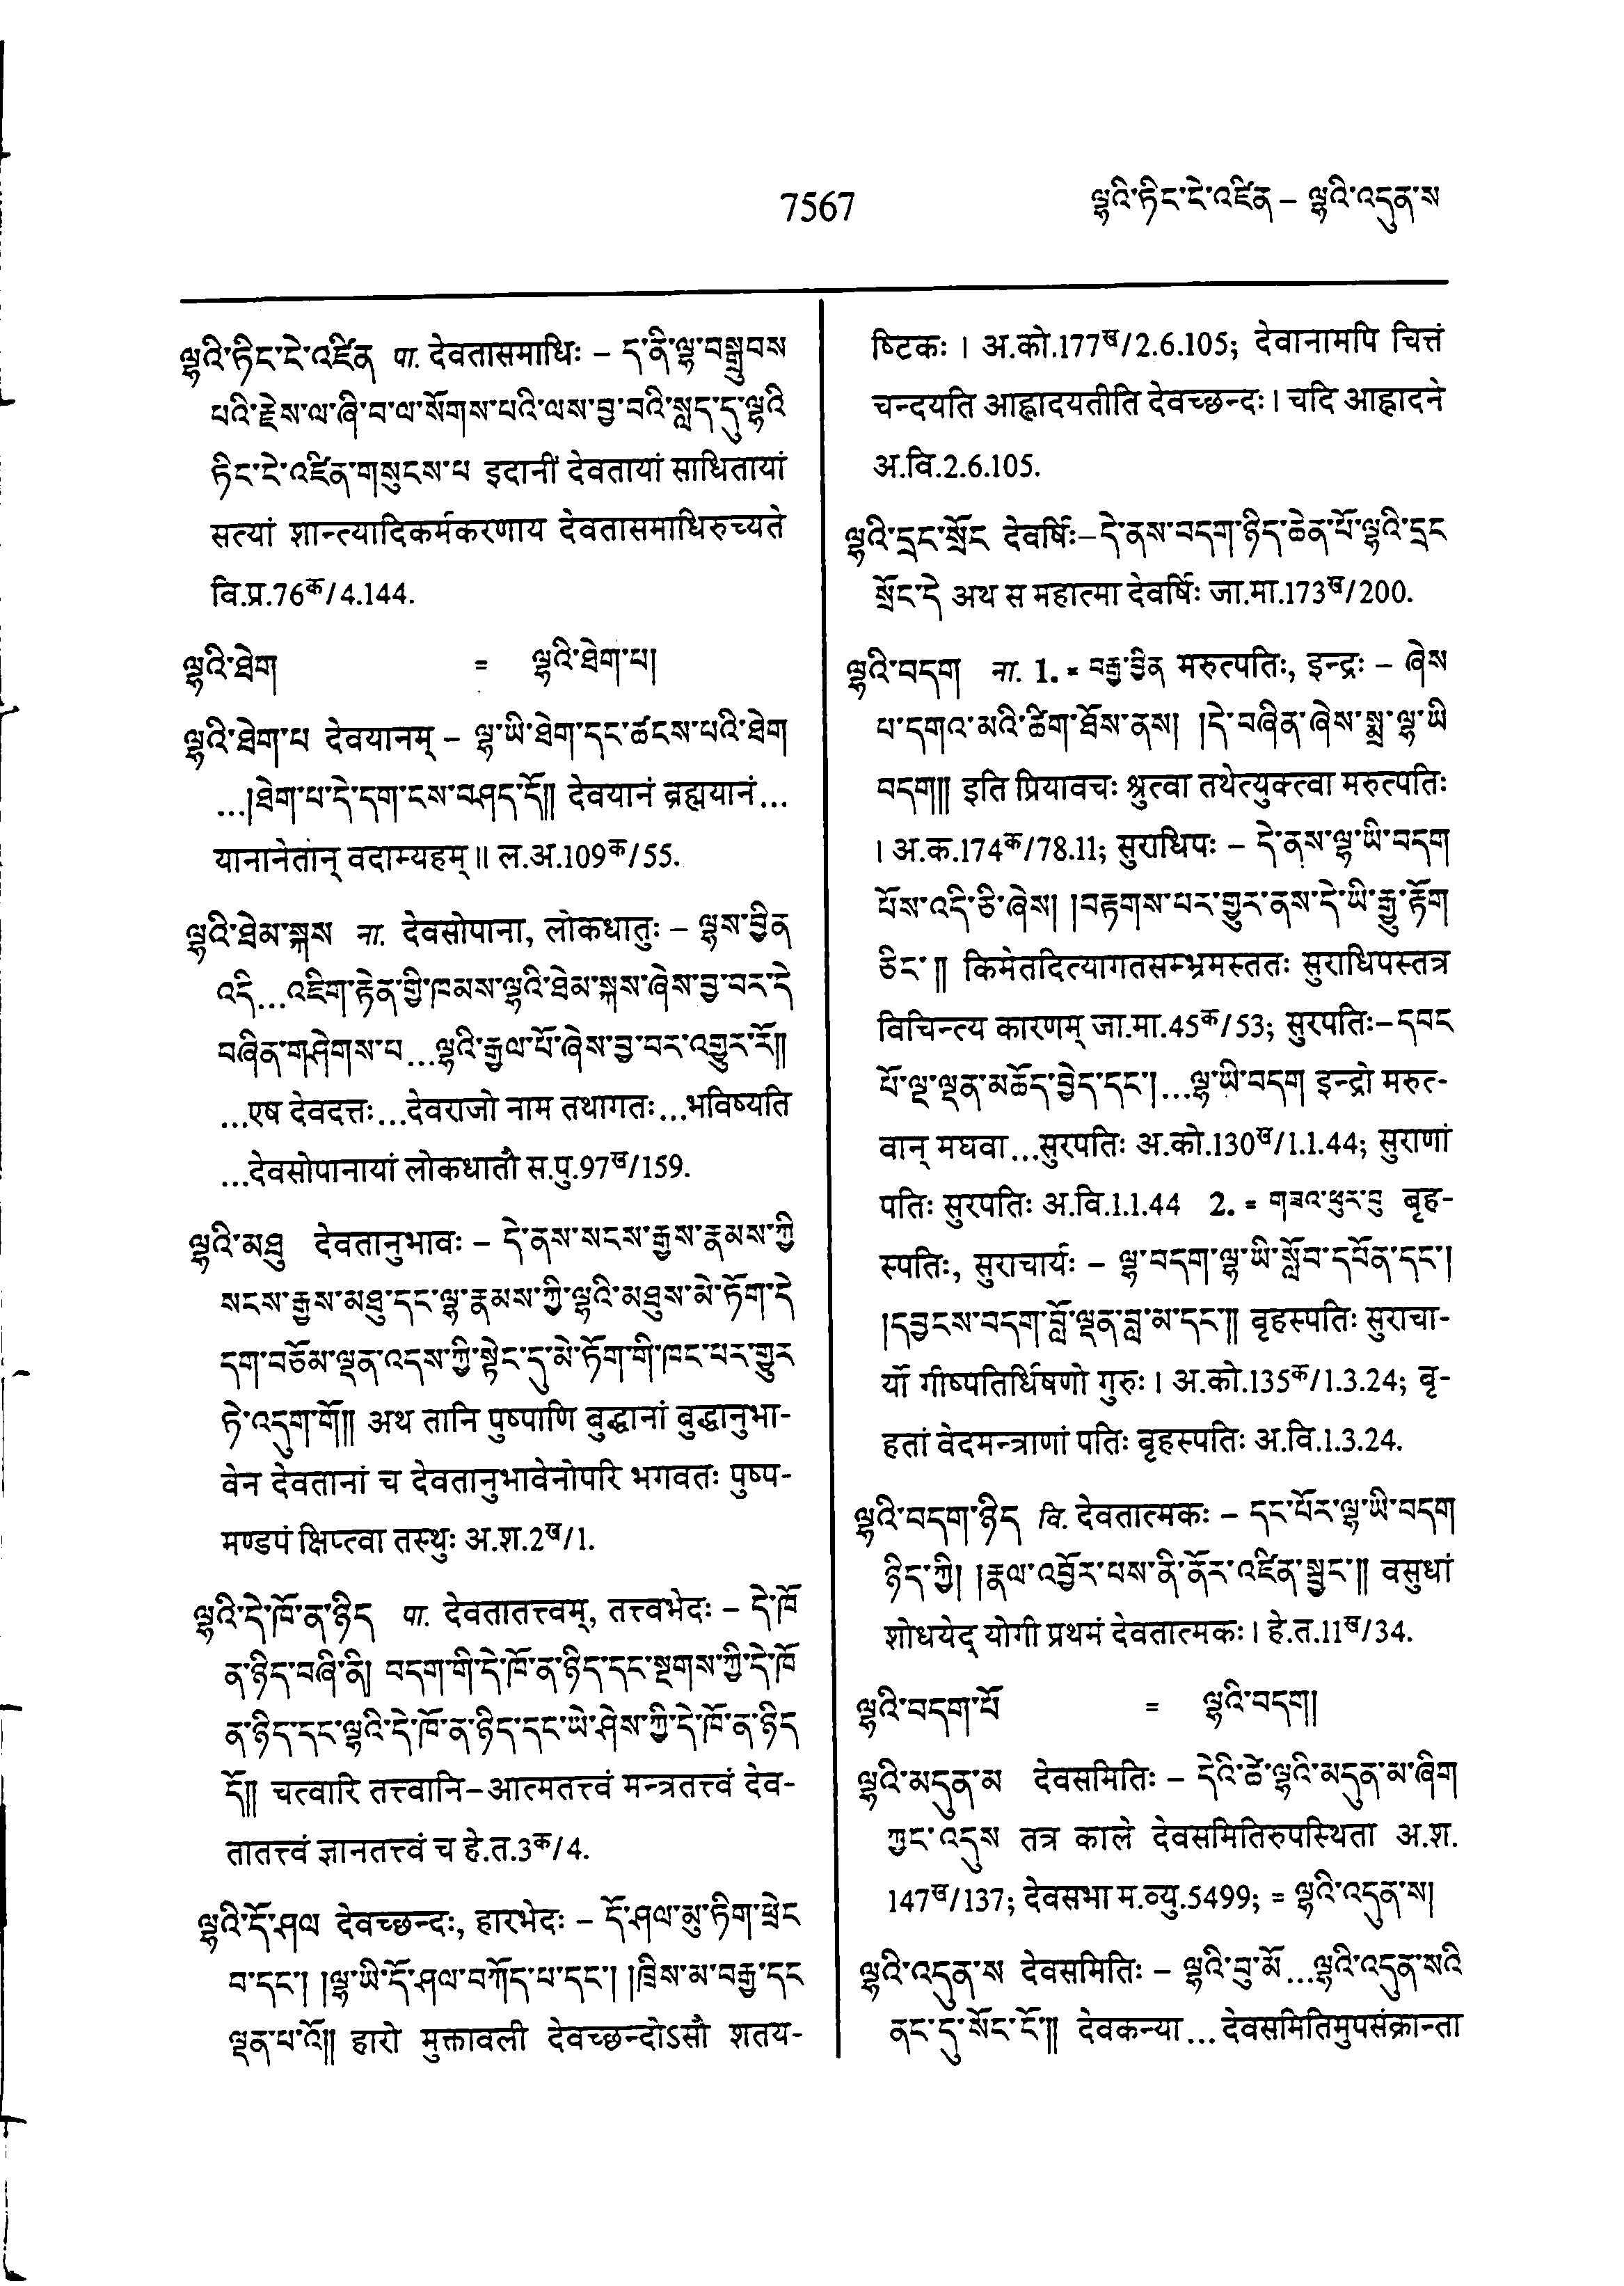 7567
ལྷའི་ཏིང་ངེ་འཛིན – ལྷའི་འདུན་ས
ལྷའི་ཏིང་ངེ་འཛིན पा. देवतासमाधिः – ད་ནི་ལྷ་བསྒྲུབས
པའི་རྗེས་ལ་ཞི་བ་ལ་སོགས་པའི་ལས་བྱ་བའི་སླད་དུ་ལྷའི
ཏིང་ངེ་འཛིན་གསུངས་པ इदानीं देवतायां साधितायां
सत्यां शान्त्यादिकर्मकरणाय देवतासमाधिरुच्यते
वि.प्र.76क/4.144.
ལྷའི་ཐེག = ལྷའི་ཐེག་པ།
ལྷའི་ཐེག་པ देवयानम् – ལྷ་ཡི་ཐེག་དང་ཚངས་པའི་ཐེག
...།ཐེག་པ་དེ་དག་ངས་བཤད་དོ༎ देवयानं ब्रह्मयानं...
यानानेतान् वदाम्यहम्॥ ल.अ.109क/55.
ལྷའི་ཐེམ་སྐས ना. देवसोपाना, लोकधातुः – ལྷས་བྱིན
འདི...འཇིག་རྟེན་གྱི་ཁམས་ལྷའི་ཐེམ་སྐས་ཞེས་བྱ་བར་དེ
བཞིན་གཤེགས་པ...ལྷའི་རྒྱལ་པོ་ཞེས་བྱ་བར་འགྱུར་རོ༎
...एष देवदत्तः...देवराजो नाम तथागतः...भविष्यति
...देवसोपानायां लोकधातौ स.पु.97ख/159.
ལྷའི་མཐུ देवतानुभावः – དེ་ནས་སངས་རྒྱས་རྣམས་ཀྱི
སངས་རྒྱས་མཐུ་དང་ལྷ་རྣམས་ཀྱི་ལྷའི་མཐུས་མེ་ཏོག་དེ
དག་བཅོམ་ལྡན་འདས་ཀྱི་སྟེང་དུ་མེ་ཏོག་གི་ཁང་པར་གྱུར
ཏེ་འདུག་གོ༎ अथ तानि पुष्पाणि बुद्धानां बुद्धानुभा-
वेन देवतानां च देवतानुभावेनोपरि भगवतः पुष्प-
मण्डपं क्षिप्त्वा तस्थुः अ.श.2ख/1.
ལྷའི་དེ་ཁོ་ན་ཉིད पा. देवतातत्त्वम्, तत्त्वभेदः – དེ་ཁོ
ན་ཉིད་བཞི་ནི། བདག་གི་དེ་ཁོ་ན་ཉིད་དང་སྔགས་ཀྱི་དེ་ཁོ
ན་ཉིད་དང་ལྷའི་དེ་ཁོ་ན་ཉིད་དང་ཡེ་ཤེས་ཀྱི་དེ་ཁོ་ན་ཉིད
དོ༎ चत्वारि तत्त्वानि–आत्मतत्त्वं मन्त्रतत्त्वं देव-
तातत्त्वं ज्ञानतत्त्वं च हे.त.3क/4.
ལྷའི་དོ་ཤལ देवच्छन्दः, हारभेदः – དོ་ཤལ་མུ་ཏིག་ཕྲེང
བ་དང་། །ལྷ་ཡི་དོ་ཤལ་བཀོད་པ་དང་། །ཁྲིས་མ་བརྒྱ་དང
ལྡན་པ་འོ༎ हारो मुक्तावली देवच्छन्दोऽसौ शतय-
ष्टिकः। अ.को.177ख/2.6.105; देवानामपि चित्तं
चन्दयति आह्लादयतीति देवच्छन्दः। चदि आह्लादने
अ.वि.2.6.105.
ལྷའི་དྲང་སྲོང देवर्षिः–དེ་ནས་བདག་ཉིད་ཆེན་པོ་ལྷའི་དྲང
སྲོང་དེ अथ स महात्मा देवर्षिः जा.मा.173ख/200.
ལྷའི་བདག ना. 1. = བརྒྱ་བྱིན मरुत्पतिः, इन्द्रः – ཞེས
པ་དགའ་མའི་ཚིག་ཐོས་ནས། །དེ་བཞིན་ཞེས་སྨྲ་ལྷ་ཡི
བདག༎ इति प्रियावचः श्रुत्वा तथेत्युक्त्वा मरुत्पतिः
। अ.क.174क/78.11; सुराधिपः – དེ་ནས་ལྷ་ཡི་བདག
པོས་འདི་ཅི་ཞེས། །བརྟགས་པར་གྱུར་ནས་དེ་ཡི་རྒྱུ་རྟོག
ཅིང་༎ किमेतदित्यागतसम्भ्रमस्ततः सुराधिपस्तत्र
विचिन्त्य कारणम् जा.मा.45क/53; सुरपतिः–དབང
པོ་ལྔ་ལྡན་མཆོད་བྱེད་དང་།...ལྷ་ཡི་བདག इन्द्रो मरुत-
वान् मघवा...सुरपतिः अ.को.130ख/1.1.44; सुराणां
पतिः सुरपतिः अ.वि.1.1.44 2. = གཟའ་ཕུར་བུ बृह-
स्पतिः, सुराचार्यः – ལྷ་བདག་ལྷ་ཡི་སློབ་དཔོན་དང་།
།དབྱངས་བདག་བློ་ལྡན་བླ་མ་དང་༎ बृहस्पतिः सुराचा-
र्यो गीष्पतिर्धिषणो गुरुः। अ.को.135क/1.3.24; बृ-
हतां वेदमन्त्राणां पतिः बृहस्पतिः अ.वि.1.3.24.
ལྷའི་བདག་ཉིད वि. देवतात्मकः – དང་པོར་ལྷ་ཡི་བདག
ཉིད་ཀྱི། །རྣལ་འབྱོར་པས་ནི་ནོར་འཛིན་སྦྱང་༎ वसुधां
शोधयेद् योगी प्रथमं देवतात्मकः। हे.त.11ख/34.
ལྷའི་བདག་པོ = ལྷའི་བདག།
ལྷའི་མདུན་མ देवसमितिः – དེའི་ཚེ་ལྷའི་མདུན་མ་ཞིག
ཀྱང་འདུས तत्र काले देवसमितिरुपस्थिता अ.श.
147ख/137; देवसभा म.व्यु.5499; = ལྷའི་འདུན་ས།
ལྷའི་འདུན་ས देवसमितिः – ལྷའི་བུ་མོ...ལྷའི་འདུན་སའི
ནང་དུ་སོང་ངོ་༎ देवकन्या... देवसमितिमुपसंक्रान्ता